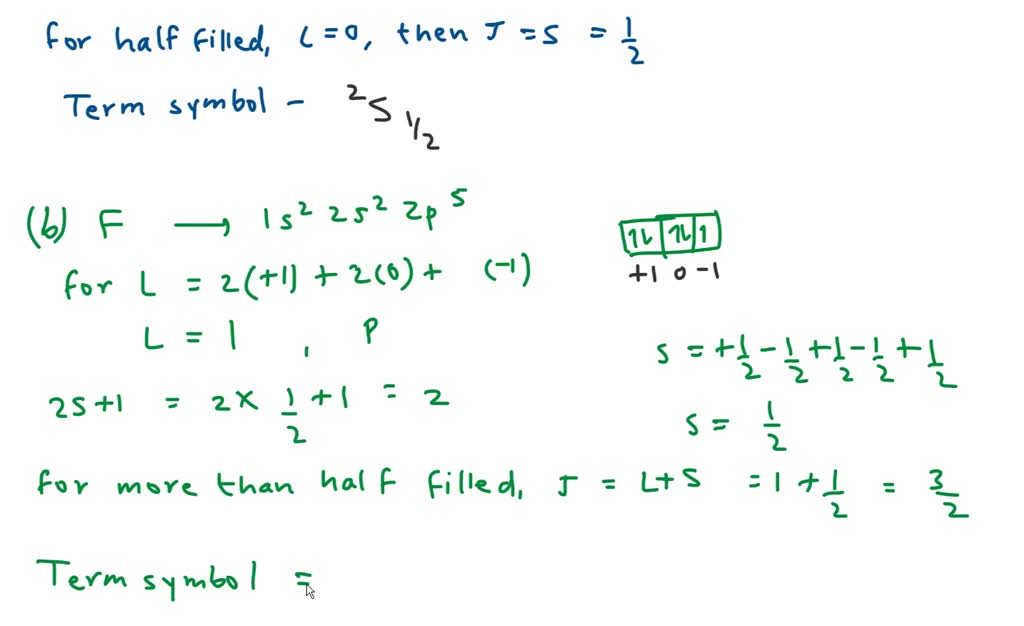 for half filled, L=0, then J = S = 1/2
Term symbol - ²S 1/2
(b) F ⟶ 1s² 2s² 2p⁵
1↿⇂ 1↿⇂ 1
+1 0 -1
for L = 2(+1) + 2(0) + (-1)
L = 1 , P
s = +1/2 - 1/2 + 1/2 - 1/2 + 1/2
2S+1 = 2 × 1/2 + 1 = 2
s = 1/2
for more than half filled, J = L+S = 1 + 1/2 = 3/2
Term symbol =